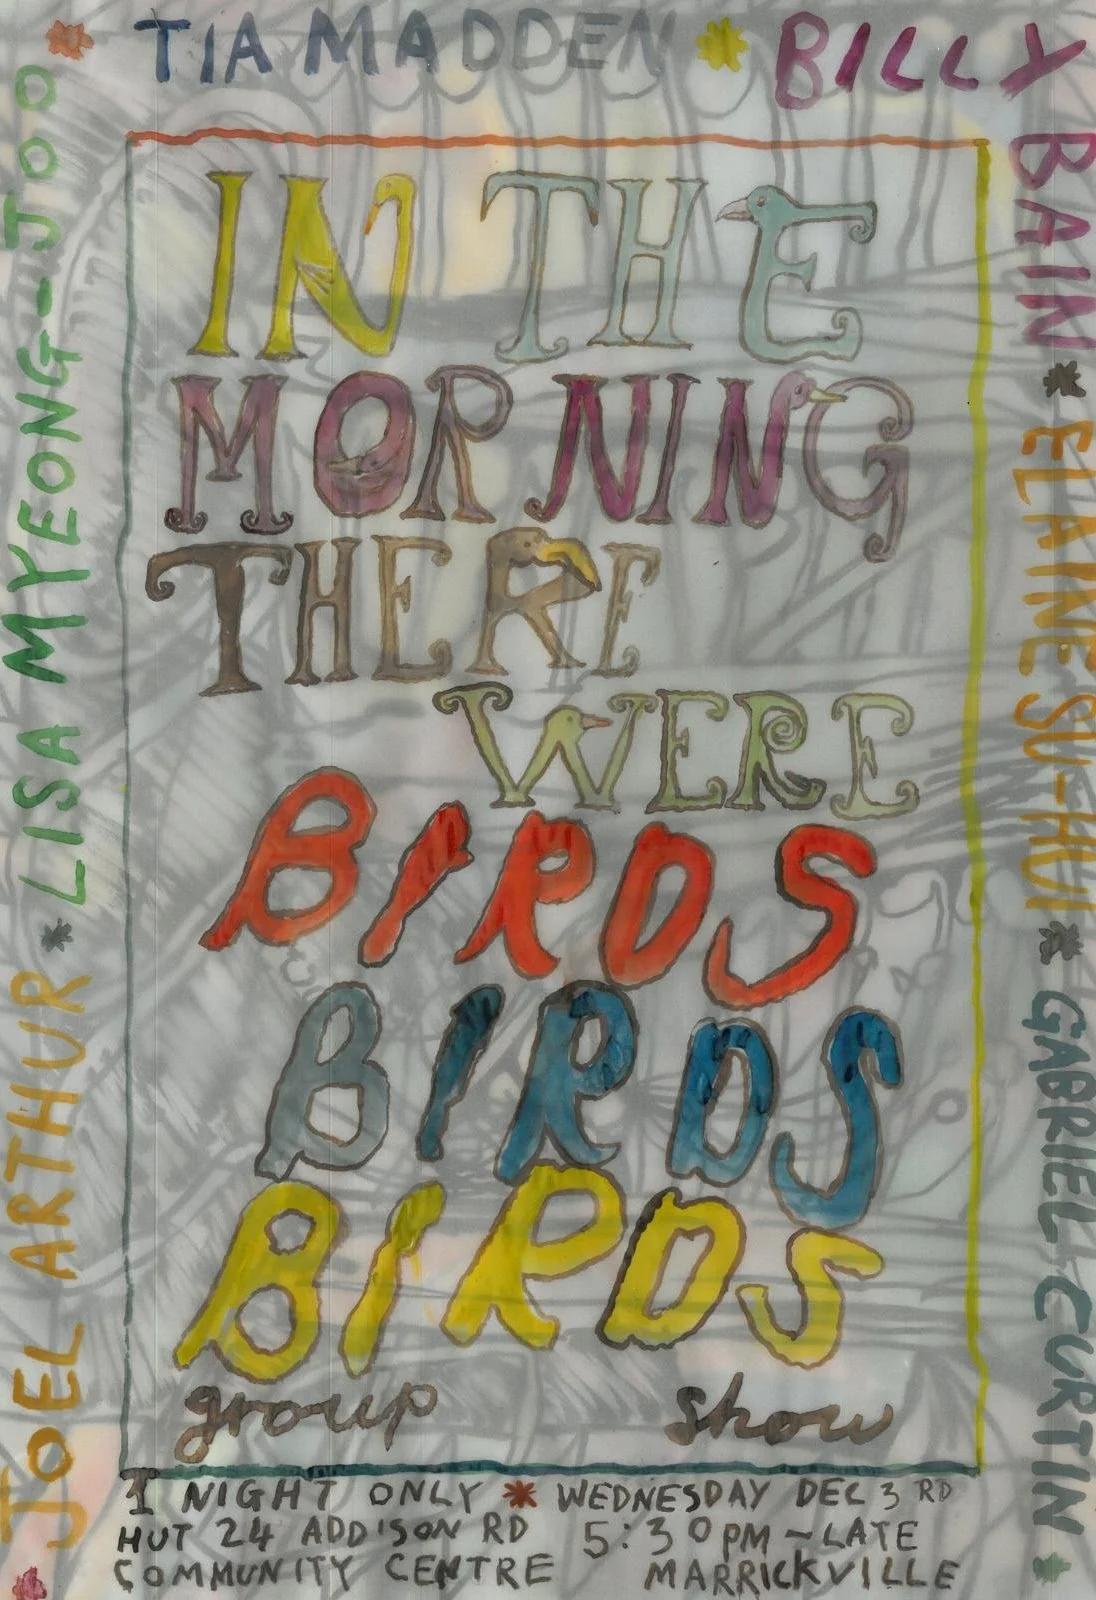 TIA MADDEN * BILLY
BAIN * ELAINE SU-HUI * GABRIEL CURTIN
JOEL ARTHUR * LISA MYEONG-JOO
IN THE
MORNING
THERE
WERE
BIRDS
BIRDS
BIRDS
group show
1 NIGHT ONLY * WEDNESDAY DEC 3RD
HUT 24 ADDISON RD 5:30PM - LATE
COMMUNITY CENTRE MARRICKVILLE